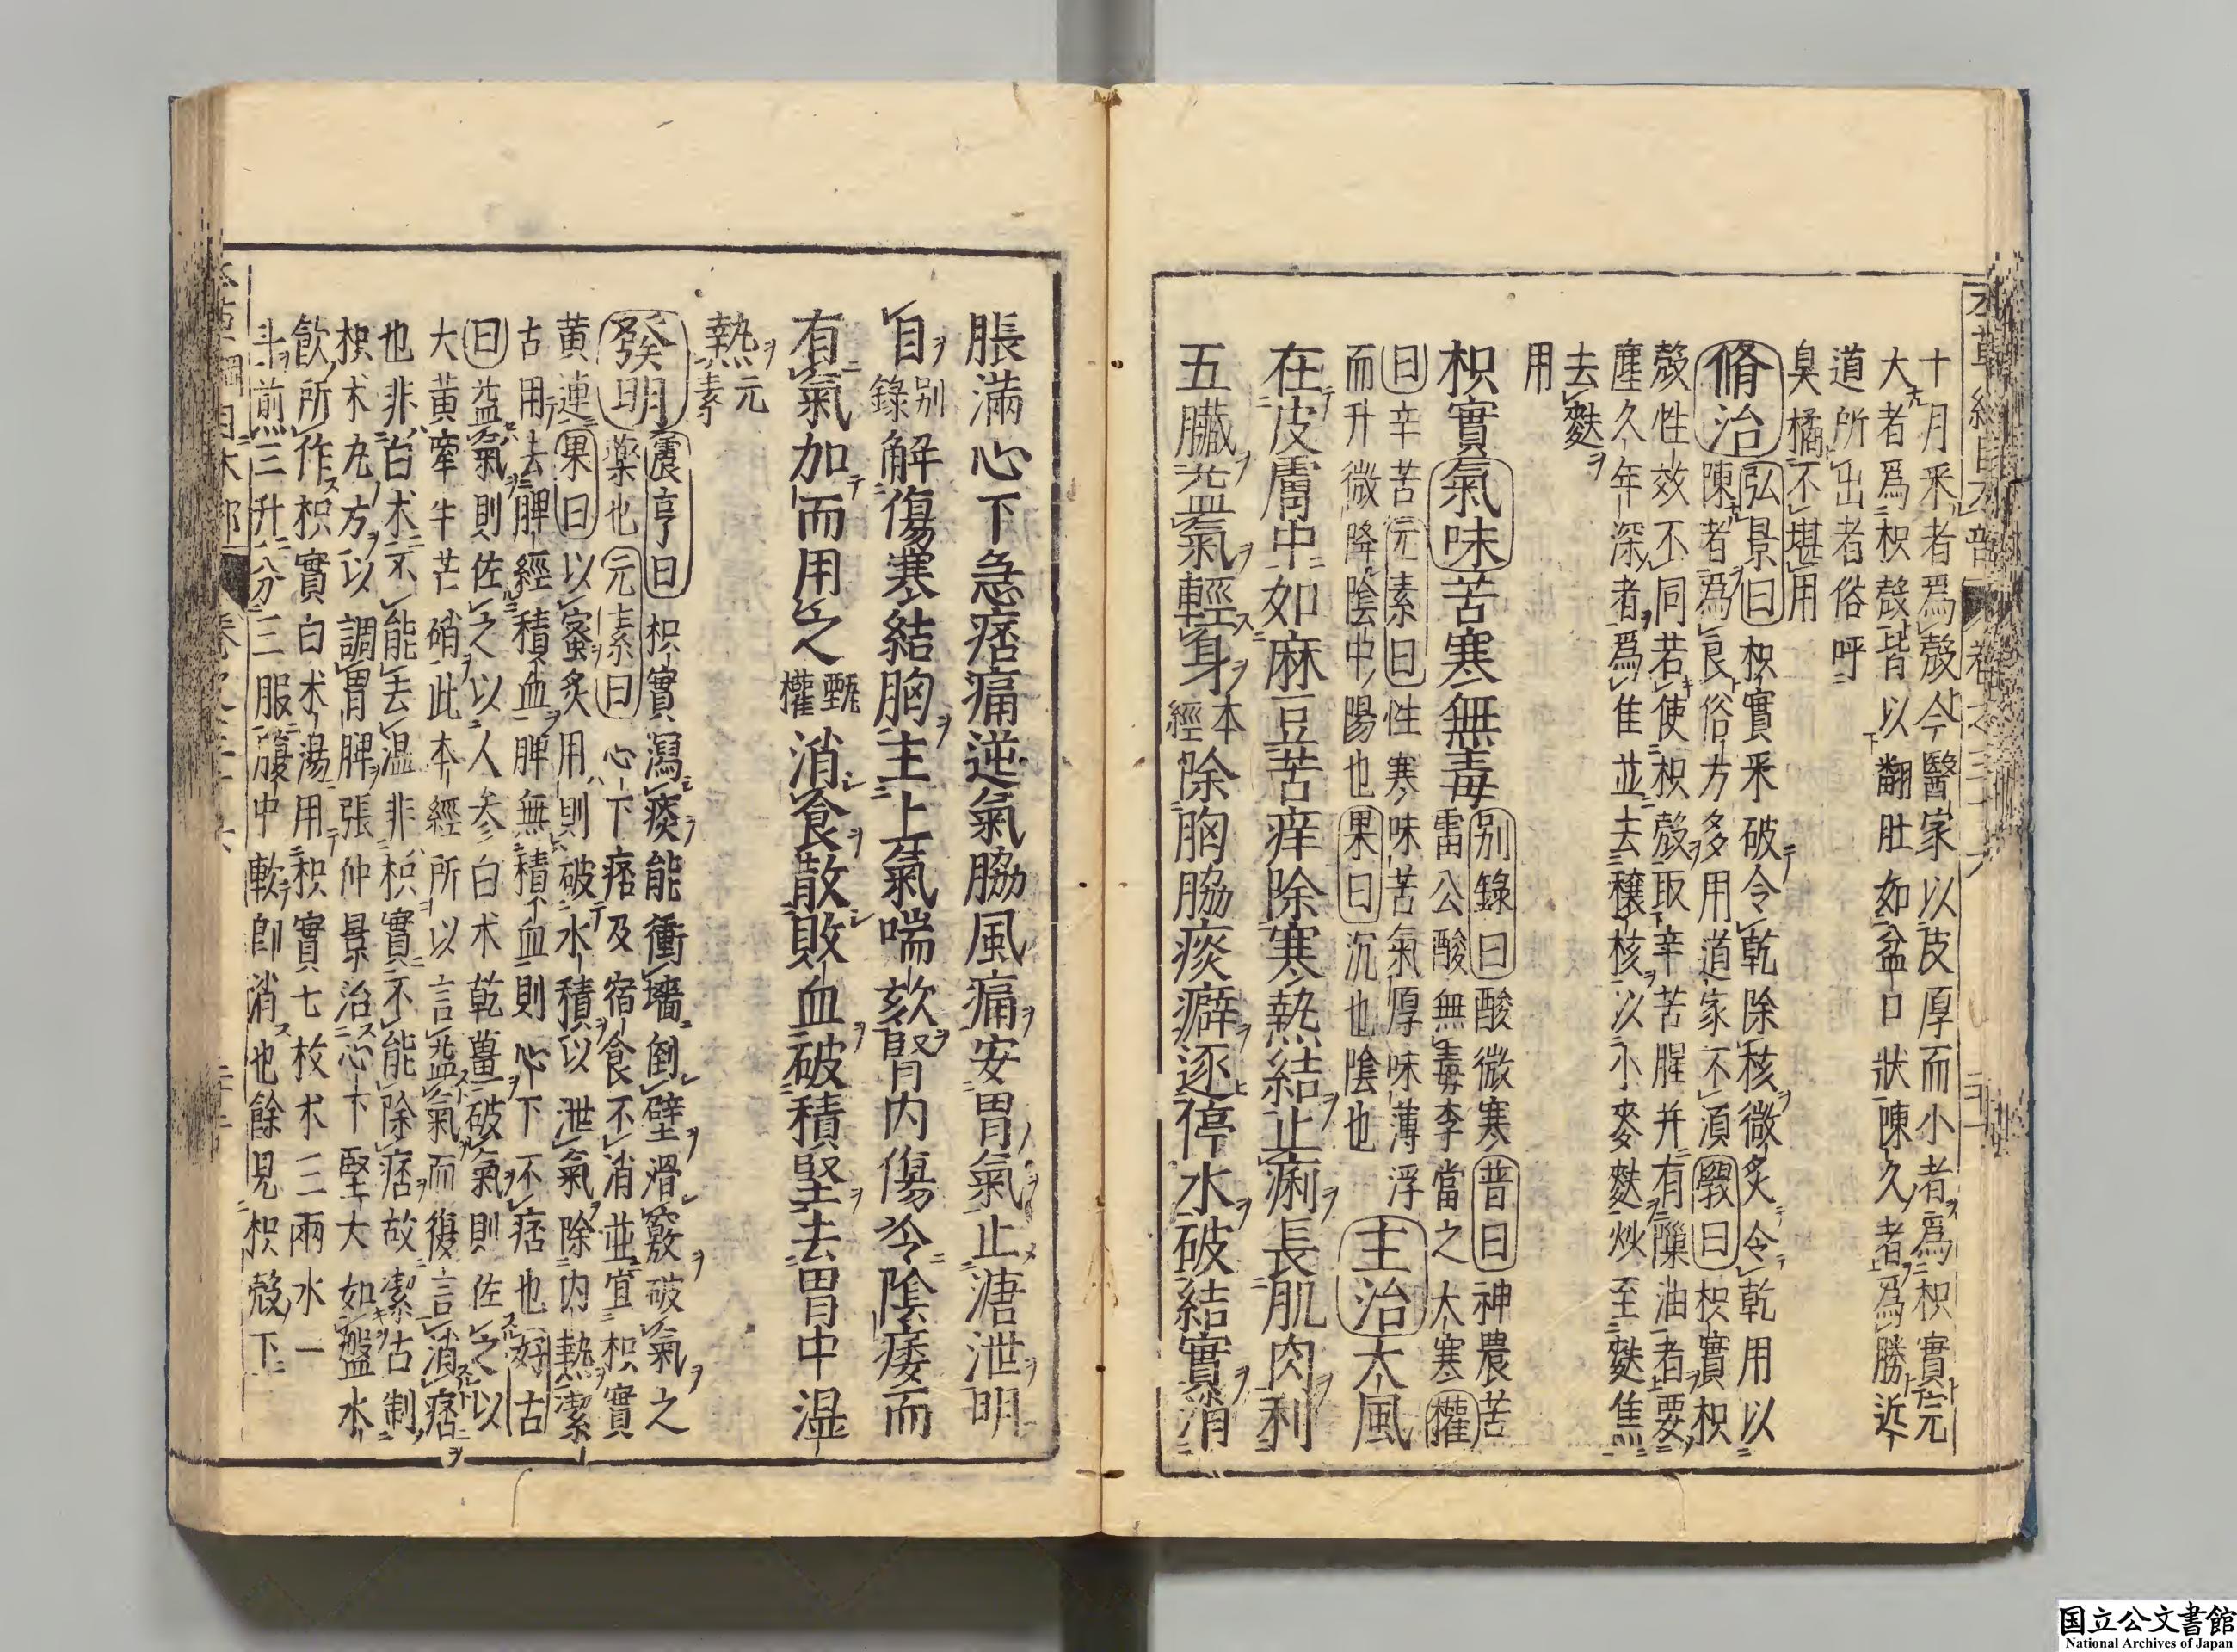 十月采者爲殼今醫家以皮厚而小者爲枳實完
大者爲枳殼皆以翻肚如盆口狀陳久者爲勝近
道所出者俗呼
臭橘不堪用
脩治弘景曰枳實采破令乾除核微炙令乾用以
陳者爲良俗方多用道家不須斅曰枳實枳
殼性效不同若使枳殼取辛苦腥并有隟油者要
塵久年深者爲佳並去穰核以小麥麩炒至麩焦
去麩
用
枳實氣味苦寒無毒別錄曰酸微寒普曰神農苦
雷公酸無毒李當之大寒權
曰辛苦元素曰性寒味苦氣厚味薄浮
而升微降陰中陽也果曰沉也陰也主治大風
在皮膚中如麻豆苦痒除寒熱結止痢長肌肉利
五臟益氣輕身本經除胸脇痰癖逐停水破結實消
脹滿心下急痞痛逆氣脇風痛安胃氣止溏泄明
目別錄解傷寒結胸主上氣喘欬腎內傷冷陰痿而
有氣加而用之甄權消食散敗血破積堅去胃中温
熱元素
發明震亨曰枳實瀉痰能衝墻倒壁滑竅破氣之
藥也元素曰心下痞及宿食不消並宜枳實
黄連果曰以蜜炙用則破水積以泄氣除內熱潔
古用去脾經積血脾無積血則心下不痞也好古
曰益氣則佐之以人参白术乾薑破氣則佐之以
大黃牽牛芒硝此本經所以言益氣而復言消痞
也非白术不能去温非枳實不能除痞故潔古制
枳术丸方以調胃脾張仲景治心下堅大如盤水
飲所作枳實白术湯用枳實七枚术三兩水一
斗煎三升分三服腹中軟卽消也餘見枳殼下
国立公文書館
National Archives of Japan